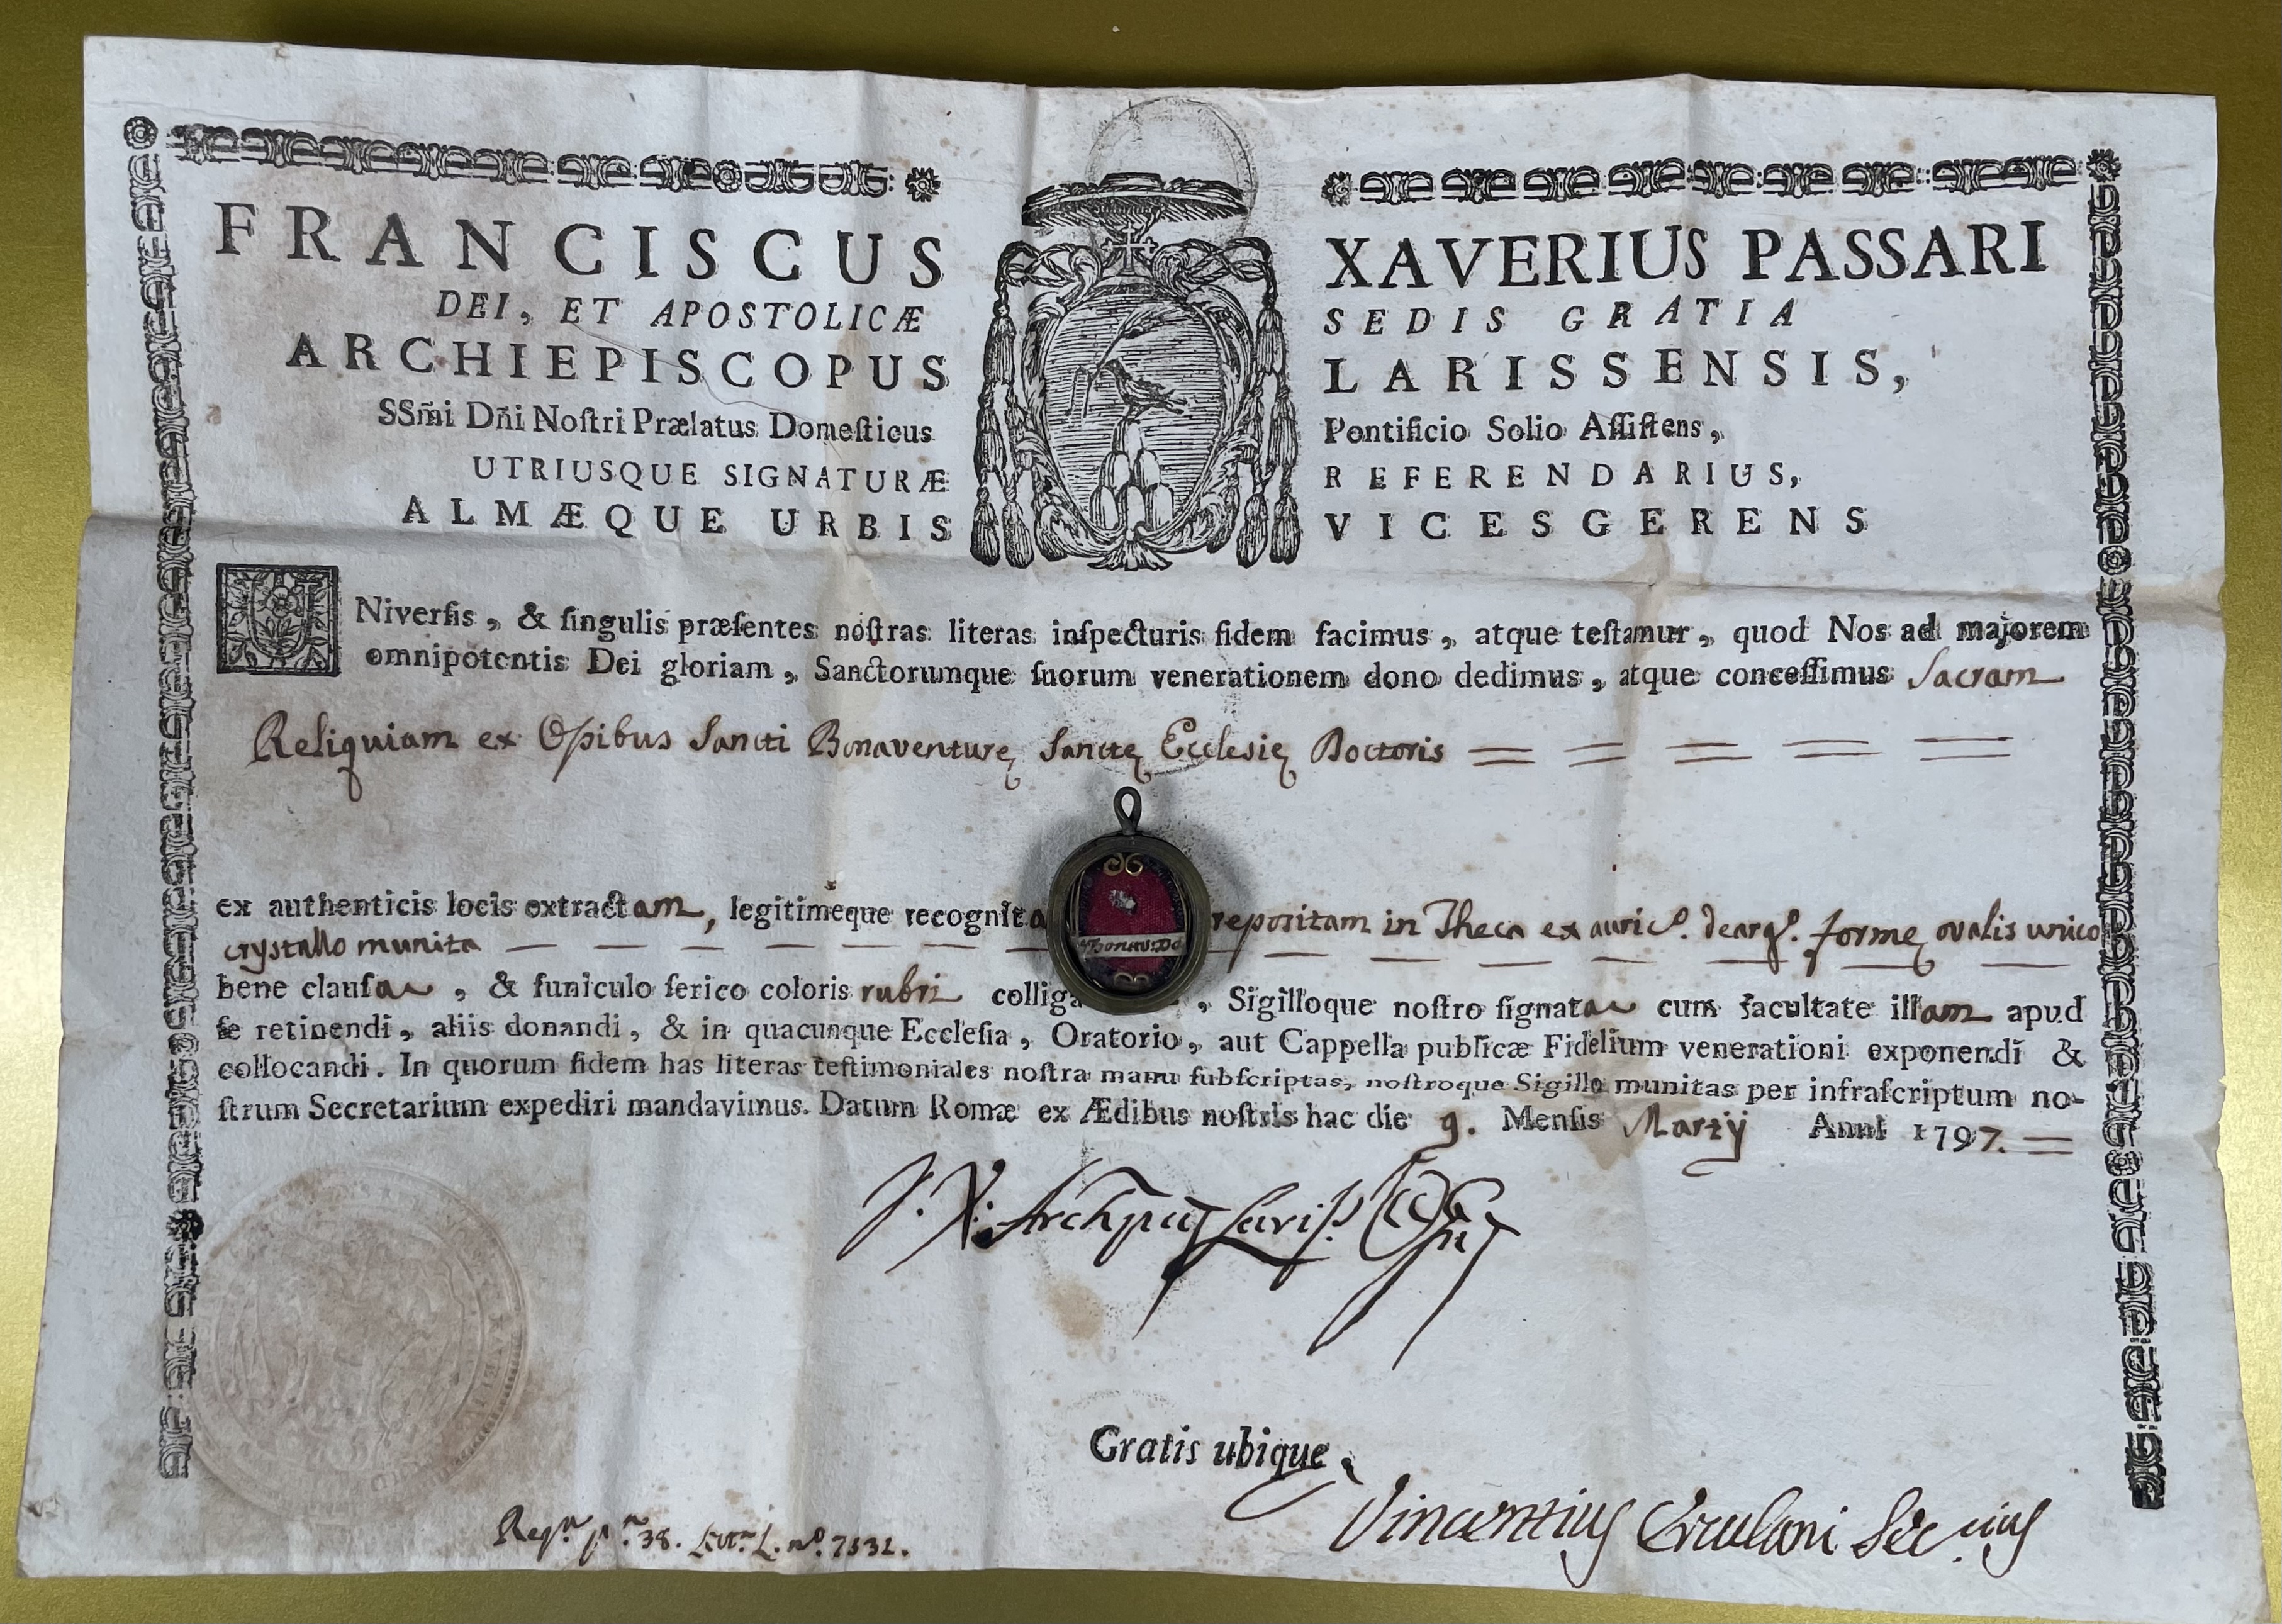 FRANCISCUS XAVERIUS PASSARI
DEI, ET APOSTOLICÆ SEDIS GRATIA
ARCHIEPISCOPUS LARISSENSIS,
SSm̃i Dñi Noſtri Prælatus Domeſticus Pontificio Solio Aſſiſtens,
UTRIUSQUE SIGNATURÆ REFERENDARIUS,
ALMÆQUE URBIS VICESGERENS
UNiverſis, & ſingulis præſentes noſtras literas inſpecturis fidem facimus, atque teſtamur, quod Nos ad majorem
omnipotentis Dei gloriam, Sanctorumque ſuorum venerationem dono dedimus, atque conceſſimus Sacram
Reliquiam ex Ossibus Sancti Bonaventurę Sanctę Ecclesię Doctoris
ex authenticis locis extractam, legitimeque recognita repositam in Theca ex auric. de arg. formę ovalis unico
crystallo munita
bene clauſa, & funiculo ſerico coloris rubri colliga, Sigilloque noſtro ſignata cum facultate illam apud
ſe retinendi, aliis donandi, & in quacunque Eccleſia, Oratorio, aut Cappella publicæ Fidelium venerationi exponendi &
collocandi. In quorum fidem has literas teſtimoniales noſtra manu ſubſcriptas, noſtroque Sigillo munitas per infraſcriptum no-
ſtrum Secretarium expediri mandavimus. Datum Romæ ex Ædibus noſtris hac die 9. Menſis Martÿ Anni 1797.
S. Bonav. Do
F. X. Archpus Lariss.
Gratis ubique.
Vincentius Erculani Sec.rius
38. L. nº. 7532.